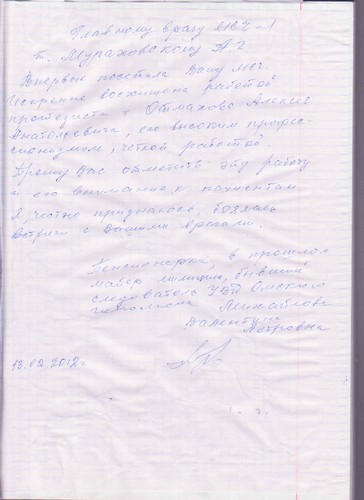 Главному врачу МСЧ-1
т. Мураховскому А Г
Впервые посетила Вашу мсч.
Искренне восхищена работой
протезиста т Отмахова Алексея
Анатольевича, его высоким профес-
сионализмом, четкой работой.
Прошу Вас отметить эту работу
и его внимание к пациентам
Я, честно признаюсь, боялась
встречи с Вашими врачами.
Пенсионерка, в прошлом
майор милиции, бывший
следователь УВД Омского
Михайлова
Валентина
Петровна
13.02.2012г